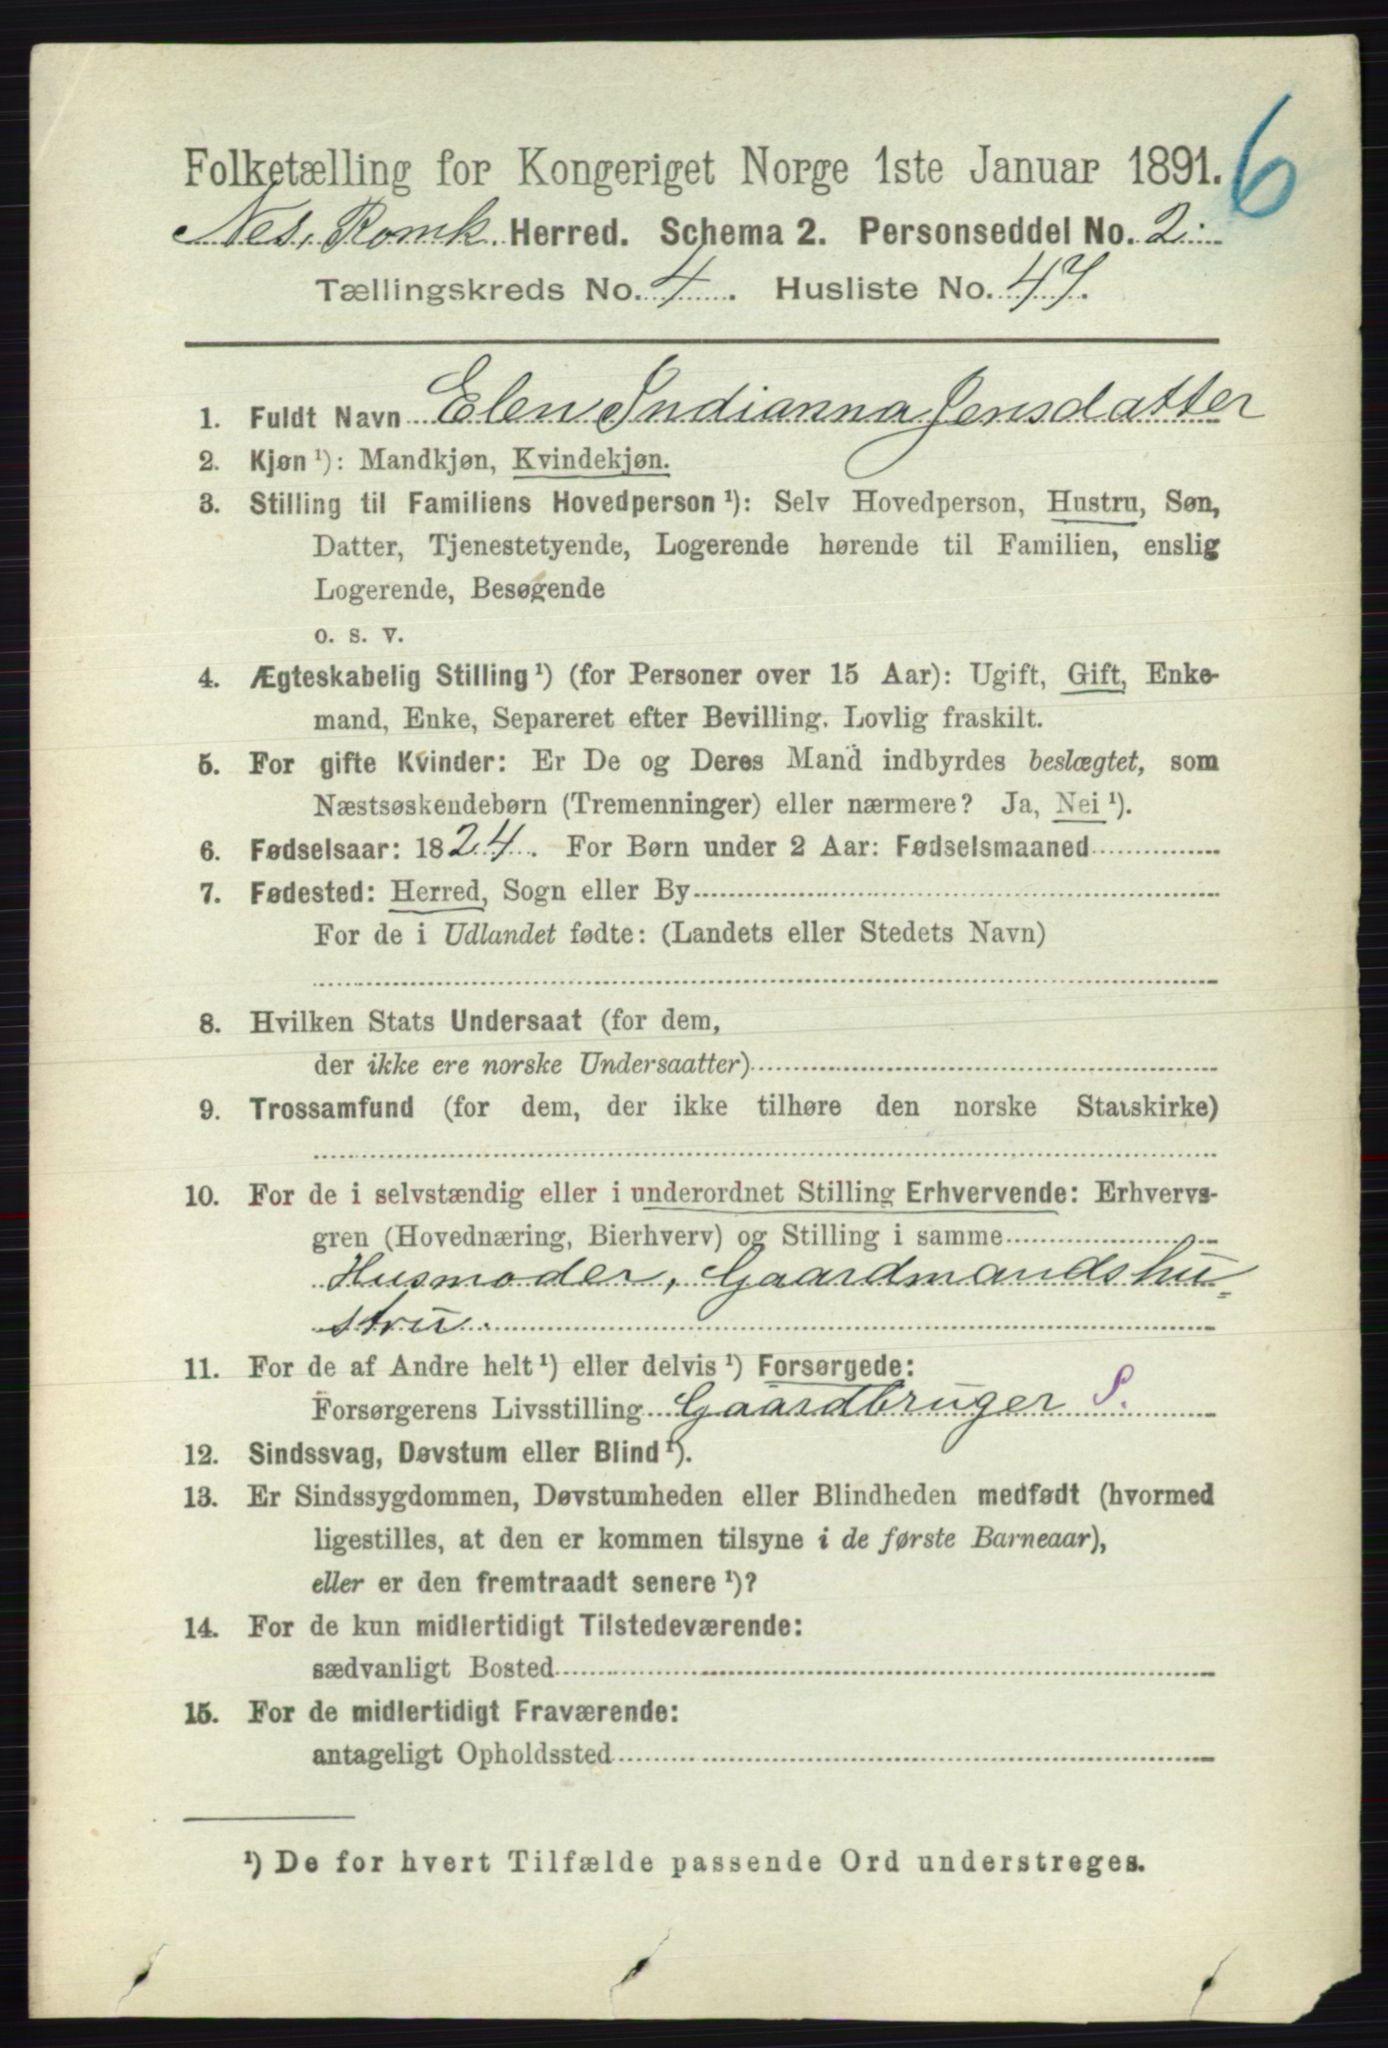 6
Folketælling for Kongeriget Norge 1ste Januar 1891.
Nes, Romk. Herred. Schema 2. Personseddel No. 2.
Tællingskreds No. 4. Husliste No. 47.
1. Fuldt Navn Elen Indianna Jensdatter
2. Kjøn ¹): Mandkjøn, Kvindekjøn.
3. Stilling til Familiens Hovedperson ¹): Selv Hovedperson, Hustru, Søn,
Datter, Tjenestetyende, Logerende hørende til Familien, enslig
Logerende, Besøgende
o. s. v.
4. Ægteskabelig Stilling ¹) (for Personer over 15 Aar): Ugift, Gift, Enke-
mand, Enke, Separeret efter Bevilling. Lovlig fraskilt.
5. For gifte Kvinder: Er De og Deres Mand indbyrdes beslægtet, som
Næstsøskendebørn (Tremenninger) eller nærmere? Ja, Nei ¹).
6. Fødselsaar: 1824. For Børn under 2 Aar: Fødselsmaaned
7. Fødested: Herred, Sogn eller By
For de i Udlandet fødte: (Landets eller Stedets Navn)
8. Hvilken Stats Undersaat (for dem,
der ikke ere norske Undersaatter)
9. Trossamfund (for dem, der ikke tilhøre den norske Statskirke)
10. For de i selvstændig eller i underordnet Stilling Erhvervende: Erhvervs-
gren (Hovednæring, Bierhverv) og Stilling i samme
Husmoder, Gaardmandshu=
stru.
11. For de af Andre helt ¹) eller delvis ¹) Forsørgede:
Forsørgerens Livsstilling Gaardbruger S.
12. Sindssvag, Døvstum eller Blind ¹).
13. Er Sindssygdommen, Døvstumheden eller Blindheden medfødt (hvormed
ligestilles, at den er kommen tilsyne i de første Barneaar),
eller er den fremtraadt senere ¹)?
14. For de kun midlertidigt Tilstedeværende:
sædvanligt Bosted
15. For de midlertidigt Fraværende:
antageligt Opholdssted
¹) De for hvert Tilfælde passende Ord understreges.